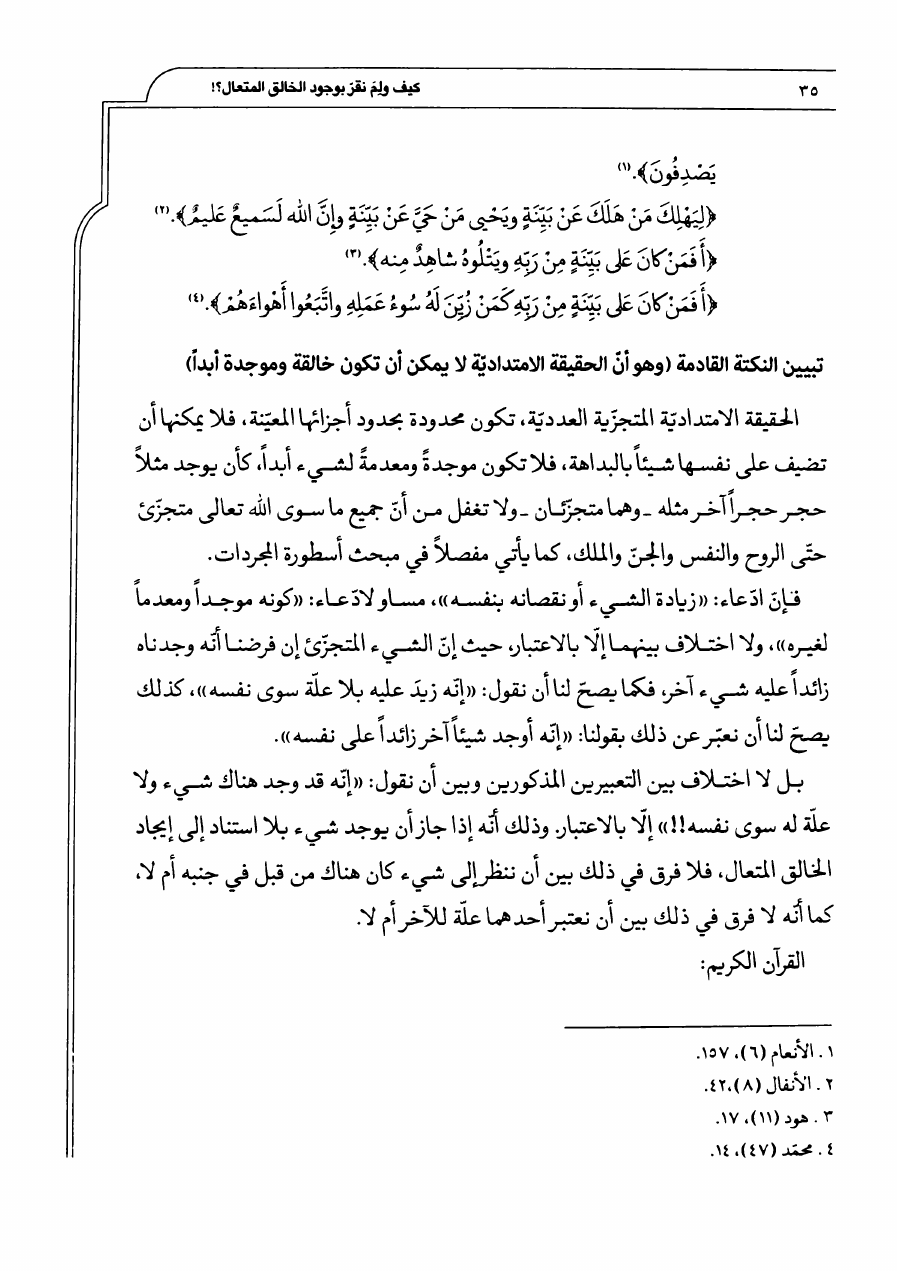 ٣٥
كيف ولِمَ نقرّ بوجود الخالق المتعال؟!
يَصْدِفُونَ﴾.(١)
﴿لِيَهْلِكَ مَنْ هَلَكَ عَنْ بَيِّنَةٍ ويَحْيى مَنْ حَيَّ عَنْ بَيِّنَةٍ وإِنَّ الله لَسَميعٌ عَليمٌ﴾.(٢)
﴿أَ فَمَنْ كانَ عَلى بَيِّنَةٍ مِنْ رَبِّهِ ويَتْلُوهُ شاهِدٌ مِنه﴾.(٣)
﴿أَ فَمَنْ كانَ عَلى بَيِّنَةٍ مِنْ رَبِّهِ كَمَنْ زُيِّنَ لَهُ سُوءُ عَمَلِهِ واتَّبَعُوا أَهْواءَهُمْ﴾.(٤)
تبيين النكتة القادمة (وهو أنّ الحقيقة الامتداديّة لا يمكن أن تكون خالقة وموجدة أبداً)
الحقيقة الامتداديّة المتجزّية العدديّة، تكون محدودة بحدود أجزائها المعيّنة، فلا يمكنها أن
تضيف على نفسها شيئاً بالبداهة، فلا تكون موجدةً ومعدمةً لشيء أبداً، كأن يوجد مثلاً
حجر حجراً آخر مثله ـ وهما متجزّئان ـ ولا تغفل من أنّ جميع ما سوى الله تعالى متجزّئ
حتّى الروح والنفس والجنّ والملك، كما يأتي مفصلاً في مبحث أسطورة المجردات.
فإنّ ادّعاء: «زيادة الشيء أو نقصانه بنفسه»، مساو لادّعاء: «كونه موجداً ومعدماً
لغيره»، ولا اختلاف بينهما إلّا بالاعتبار، حيث إنّ الشيء المتجزّئ إن فرضنا أنّه وجدناه
زائداً عليه شيء آخر، فكما يصحّ لنا أن نقول: «إنّه زيدَ عليه بلا علّة سوى نفسه»، كذلك
يصحّ لنا أن نعبّر عن ذلك بقولنا: «إنّه أوجد شيئاً آخر زائداً على نفسه».
بل لا اختلاف بين التعبيرين المذكورين وبين أن نقول: «إنّه قد وجد هناك شيء ولا
علّة له سوى نفسه!!» إلّا بالاعتبار. وذلك أنّه إذا جاز أن يوجد شيء بلا استناد إلى إيجاد
الخالق المتعال، فلا فرق في ذلك بين أن ننظر إلى شيء كان هناك من قبل في جنبه أم لا،
كما أنّه لا فرق في ذلك بين أن نعتبر أحدهما علّة للآخر أم لا.
القرآن الكريم:
١. الأنعام (٦)، ١٥٧.
٢. الأنفال (٨)، ٤٢.
٣. هود (١١)، ١٧.
٤. محمّد (٤٧)، ١٤.